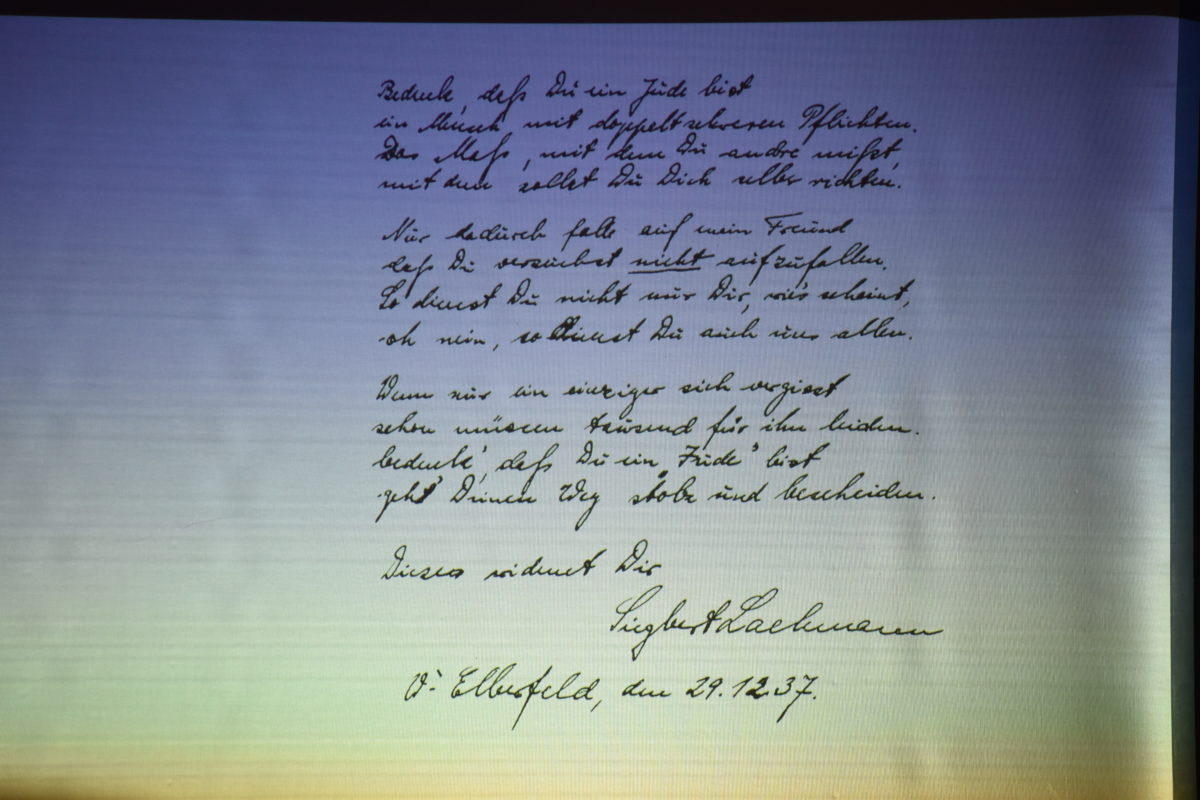 Bedenk', daß Du ein Jude bist
ein Mensch mit doppeltschweren Pflichten.
Das Maß, mit dem Du andre mißt,
mit dem sollst Du Dich selber richten.
Nur dadurch falle auf mein Freund
daß Du versuchst nicht aufzufallen.
So dienst Du nicht nur Dir, wie's scheint,
oh nein, so dienst Du auch uns allen.
Wenn nur ein einziger sich vergisst
schon müssen tausend für ihn leiden.
bedenk', daß Du ein „Jude" bist
geh' Deinen Weg stolz und bescheiden.
Dieses widmet Dir
Siegbert Lachmann
W.-Elberfeld, den 29.12.37.